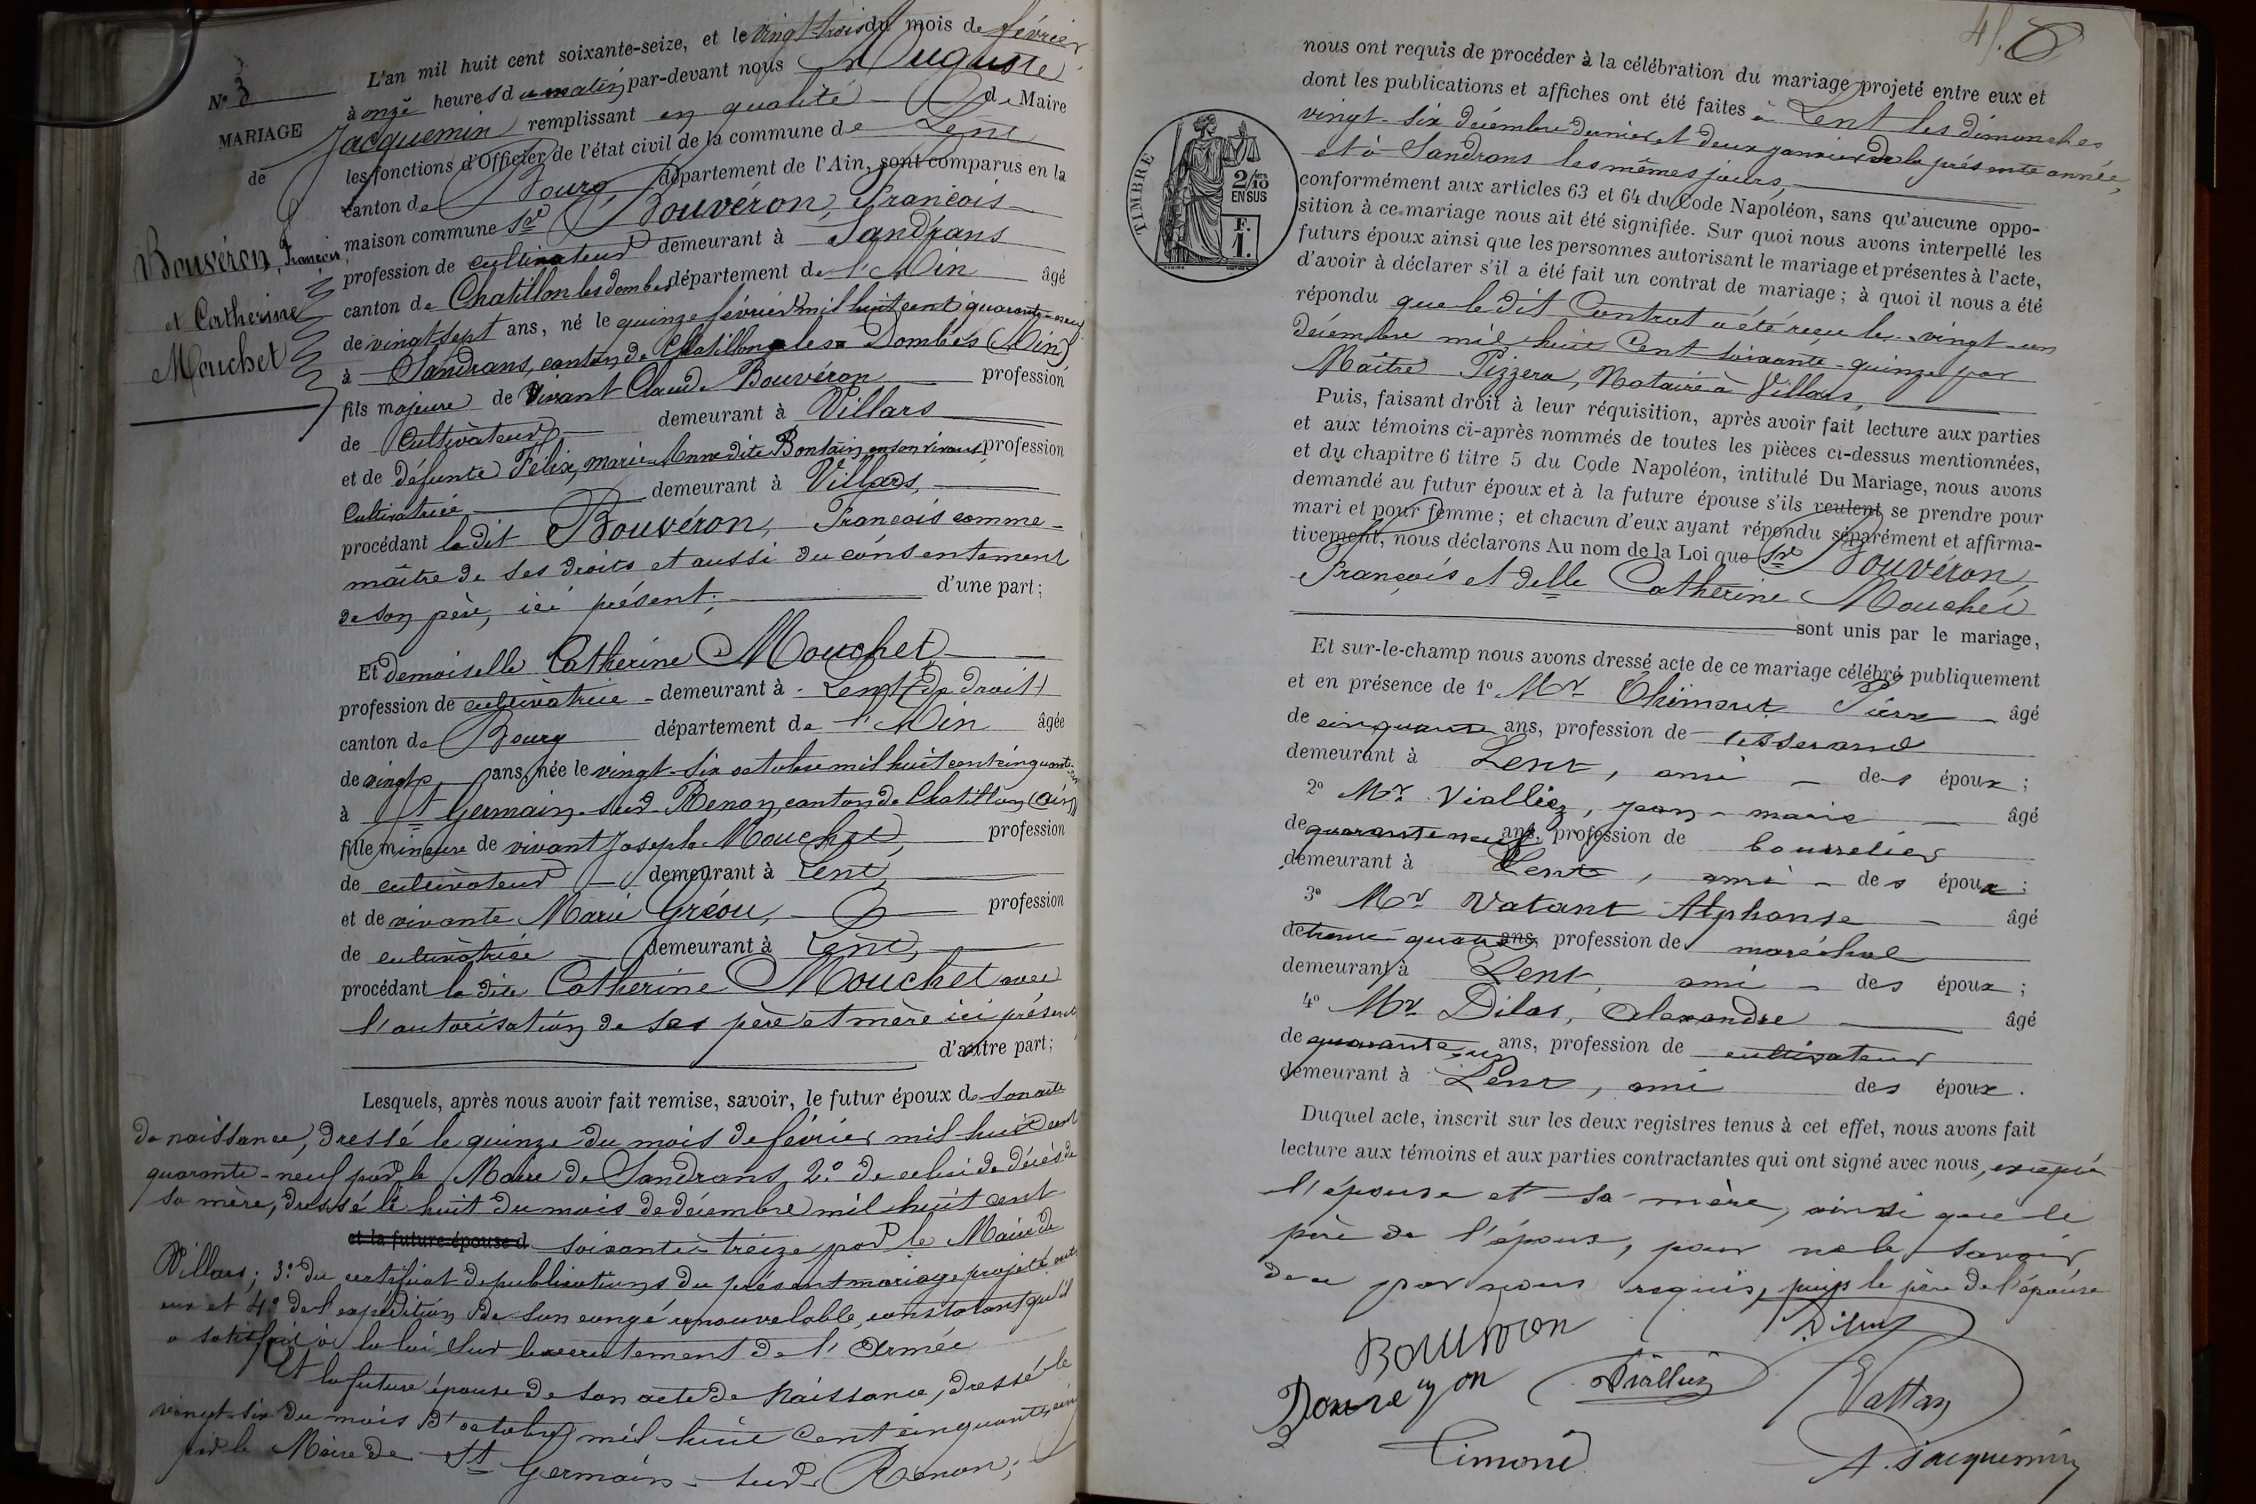 N° 3
MARIAGE
de
Bouvéron, François,
et Catherine
Mouchet
L'an mil huit cent soixante-seize, et le vingt-trois du mois de février
à onze heures du matin, par-devant nous Auguste
Jacquemin remplissant en qualité de Maire
les fonctions d'Officier de l'état civil de la commune de Lent
canton de Bourg, département de l'Ain, sont comparus en la
maison commune Sr Bouvéron, François
profession de cultivateur demeurant à Sandrans
canton de Chatillon les dombes département de l'Ain âgé
de vingt sept ans, né le quinze février mil huit cent quarante-neuf
à Sandrans, canton de Chatillon-les-Dombes (Ain)
fils majeure de vivant Claude Bouvéron profession
de Cultivateur demeurant à Villars
et de défunte Félix, marie-Anne dite Bontain en son vivant, profession
Cultivatrice demeurant à Villars,
procédant le dit Bouvéron, François comme
maître de ses droits et aussi du consentement
de son père, ici présent; d'une part;
Et demoiselle Catherine Mouchet
profession de cultivatrice demeurant à Lent (de droit)
canton de Bourg département de l'Ain âgée
de vingt ans, née le vingt-six octobre mil huit cent cinquante-cinq
à St Germain-sur-Renon, canton de Chatillon (Ain)
fille mineure de vivant Joseph Mouchet profession
de cultivateur demeurant à Lent,
et de vivante Marie Gréou, profession
de cultivatrice demeurant à Lent,
procédant la dite Catherine Mouchet avec
l'autorisation de ses père et mère ici présents
d'autre part;
Lesquels, après nous avoir fait remise, savoir, le futur époux de son acte
de naissance, dressé le quinze du mois de février mil huit cent
quarante-neuf par le Maire de Sandrans, 2° de celui de décès de
sa mère, dressé le huit du mois de décembre mil huit cent
et la future épouse d soixante-treize par le Maire de
Villars; 3° du certificat de publications du présent mariage projeté entre
eux et 4° de l'expédition de son congé renouvelable, constatant qu'il
a satisfait à la loi sur le recrutement de l'Armée
Et la future épouse de son acte de Naissance, dressé le
vingt-six du mois d'octobre mil huit cent cinquante-cinq
par le Maire de St Germain-sur-Renon;
nous ont requis de procéder à la célébration du mariage projeté entre eux et
dont les publications et affiches ont été faites à Lent les dimanches
vingt-six décembre dernier et deux janvier de la présente année,
et à Sandrans les mêmes jours,
conformément aux articles 63 et 64 du Code Napoléon, sans qu'aucune oppo-
sition à ce mariage nous ait été signifiée. Sur quoi nous avons interpellé les
futurs époux ainsi que les personnes autorisant le mariage et présentes à l'acte,
d'avoir à déclarer s'il a été fait un contrat de mariage; à quoi il nous a été
répondu que le dit Contrat a été reçu le vingt-un
décembre mil huit Cent soixante-quinze par
Maître Pizzera, Notaire à Villars,
Puis, faisant droit à leur réquisition, après avoir fait lecture aux parties
et aux témoins ci-après nommés de toutes les pièces ci-dessus mentionnées,
et du chapitre 6 titre 5 du Code Napoléon, intitulé Du Mariage, nous avons
demandé au futur époux et à la future épouse s'ils veulent se prendre pour
mari et pour femme; et chacun d'eux ayant répondu séparément et affirma-
tivement, nous déclarons Au nom de la Loi que Sr Bouvéron,
François et delle Catherine Mouchet
sont unis par le mariage,
Et sur-le-champ nous avons dressé acte de ce mariage célébré publiquement
et en présence de 1° Mr Thimonet Pierre âgé
de cinquante ans, profession de tisserand
demeurant à Lent, ami des époux;
2° Mr Vialliez, jean-marie âgé
de quarante neuf ans, profession de bourrelier
demeurant à Lent, ami des époux;
3° Mr Vatant Alphonse âgé
de trente-quatre ans, profession de maréchal
demeurant à Lent, ami des époux;
4° Mr Dilas, Alexandre âgé
de quarante-un ans, profession de cultivateur
demeurant à Lent, ami des époux.
Duquel acte, inscrit sur les deux registres tenus à cet effet, nous avons fait
lecture aux témoins et aux parties contractantes qui ont signé avec nous, excepté
l'épouse et sa mère, ainsi que le
père de l'époux, pour ne le savoir
de ce par nous requis, puis le père de l'épouse
TIMBRE
2/10 EN SUS
F. 1.
Bouvéron
Dilas
Vialliez
Vattan
Timoné
A. Jacquemin